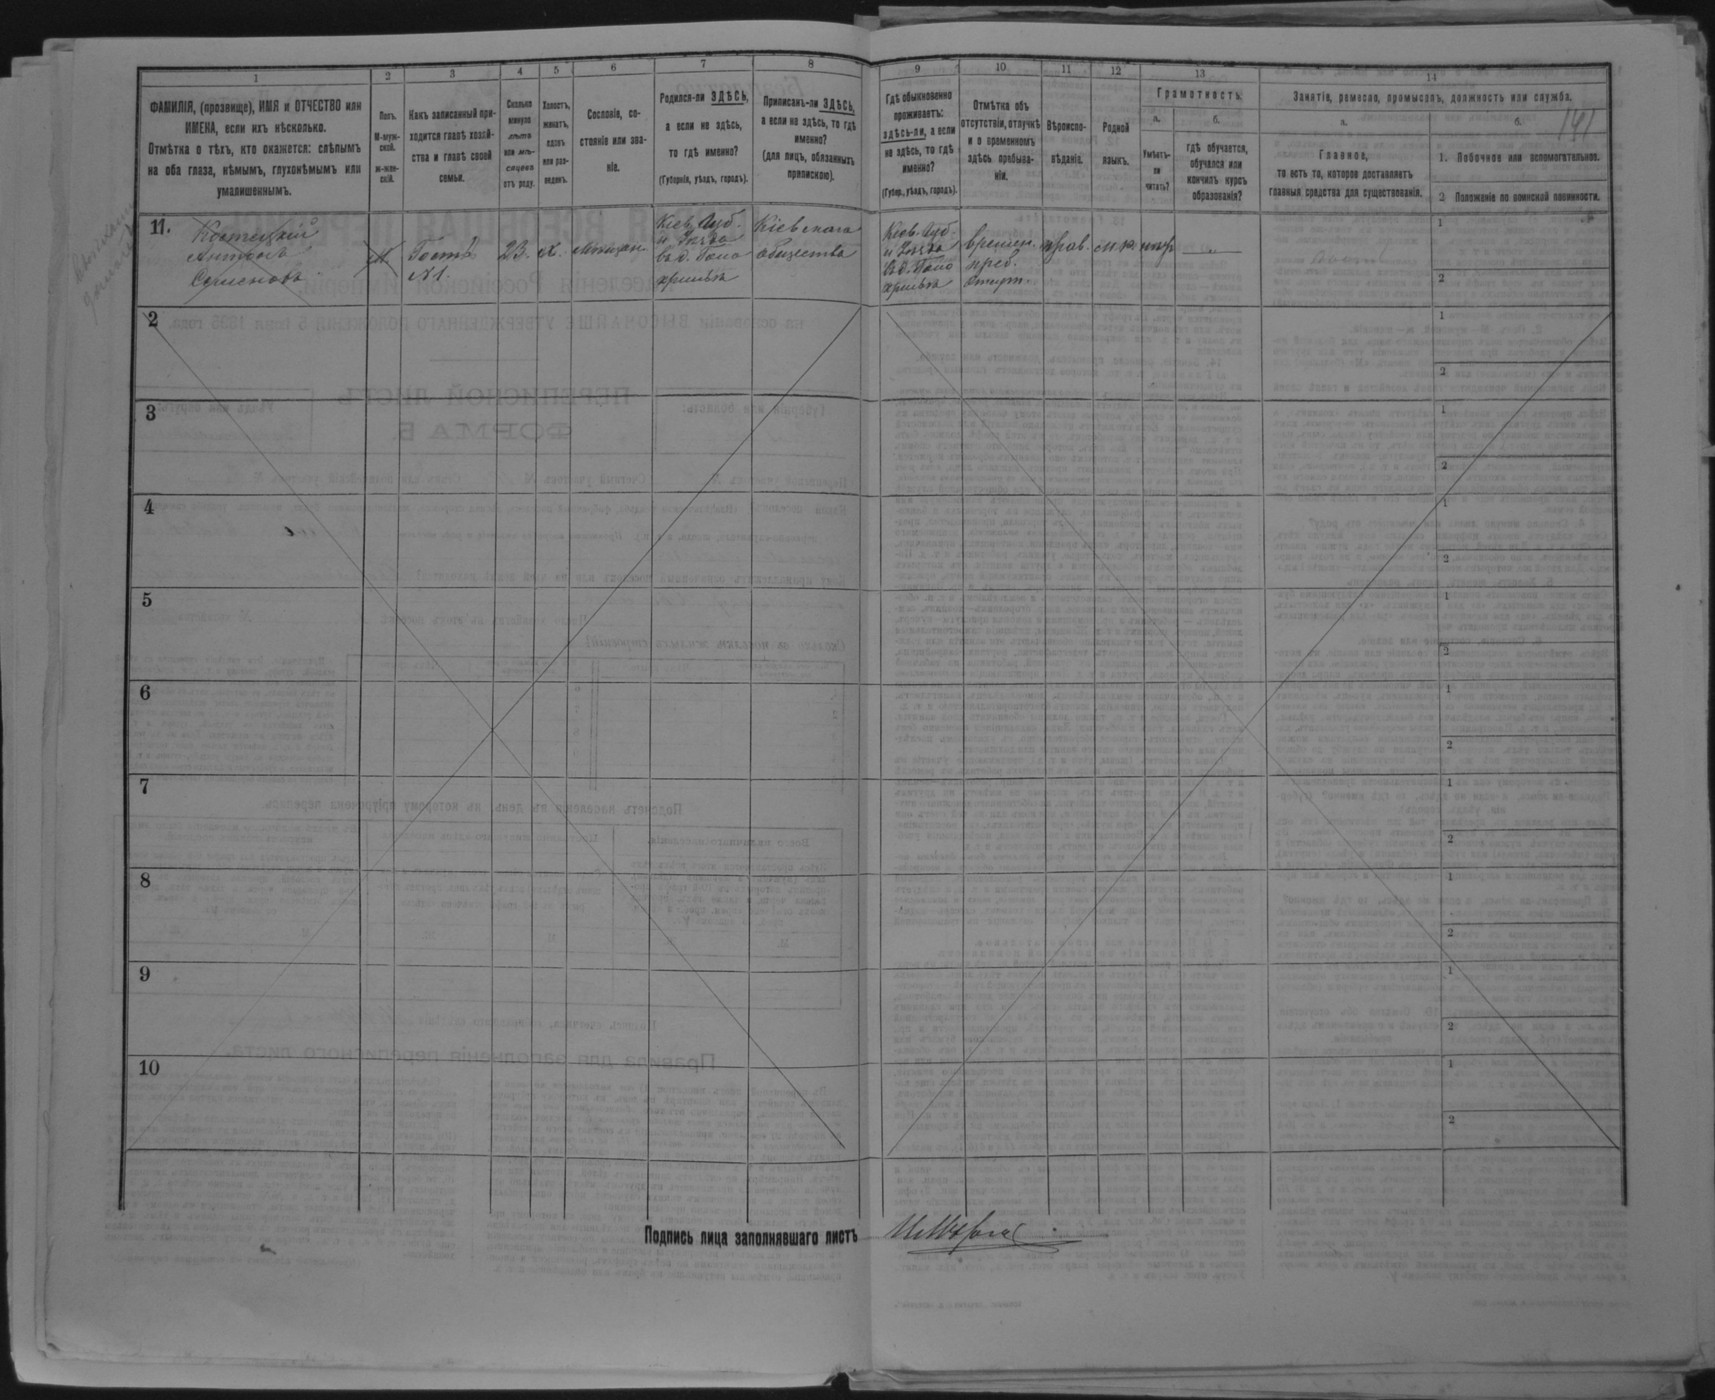 1
2
3
4
5
6
7
8
9
10
11
12
13
14
ФАМИЛІЯ, (прозвище), ИМЯ и ОТЧЕСТВО или
ИМЕНА, если ихъ нѣсколько.
Отмѣтка о тѣхъ, кто окажется: слѣпымъ
на оба глаза, нѣмымъ, глухонѣмымъ или
умалишеннымъ.
Полъ.
М-муж-
ской.
Ж-жен-
скій.
Какъ записанный при-
ходится главѣ хозяй-
ства и главѣ своей
семьи.
Сколько
минуло
лѣтъ
или мѣ-
сяцевъ
отъ роду.
Холостъ,
женатъ,
вдовъ
или раз-
веденъ.
Сословіе, со-
стояніе или зва-
ніе.
Родился-ли ЗДѢСЬ,
а если не здѣсь,
то гдѣ именно?
(Губернія, уѣздъ, городъ).
Приписанъ-ли ЗДѢСЬ,
а если не здѣсь, то гдѣ
именно?
(для лицъ, обязанныхъ
припискою).
Гдѣ обыкновенно
проживаетъ:
здѣсь-ли, а если
не здѣсь, то гдѣ
именно?
(Губер., уѣздъ, городъ).
Отмѣтка объ
отсутствіи, отлучкѣ
и о временномъ
здѣсь пребыва-
ніи.
Вѣроиспо-
вѣданіе.
Родной
языкъ.
Грамотность.
а.
Умѣетъ-
ли
читать?
б.
гдѣ обучается,
обучался или
кончилъ курсъ
образованія?
Занятіе, ремесло, промыселъ, должность или служба.
а.
Главное,
то есть то, которое доставляетъ
главныя средства для существованія.
б.
141
1. Побочное или вспомогательное.
2 Положеніе по воинской повинности.
11.
Костецкій
Антонъ
Семеновъ
М
Гость
№1.
23.
х.
мѣщан
Кіев. Губ.
и Уѣзда
въ д.
Кіевскаго
общества
Кіев. Губ.
и Уѣзда
въ д.
времен.
преб.
прав.
1
2
2
1
2
3
1
2
4
1
2
5
1
2
6
1
2
7
1
2
8
1
2
9
1
2
10
1
2
Подпись лица заполнявшаго листъ